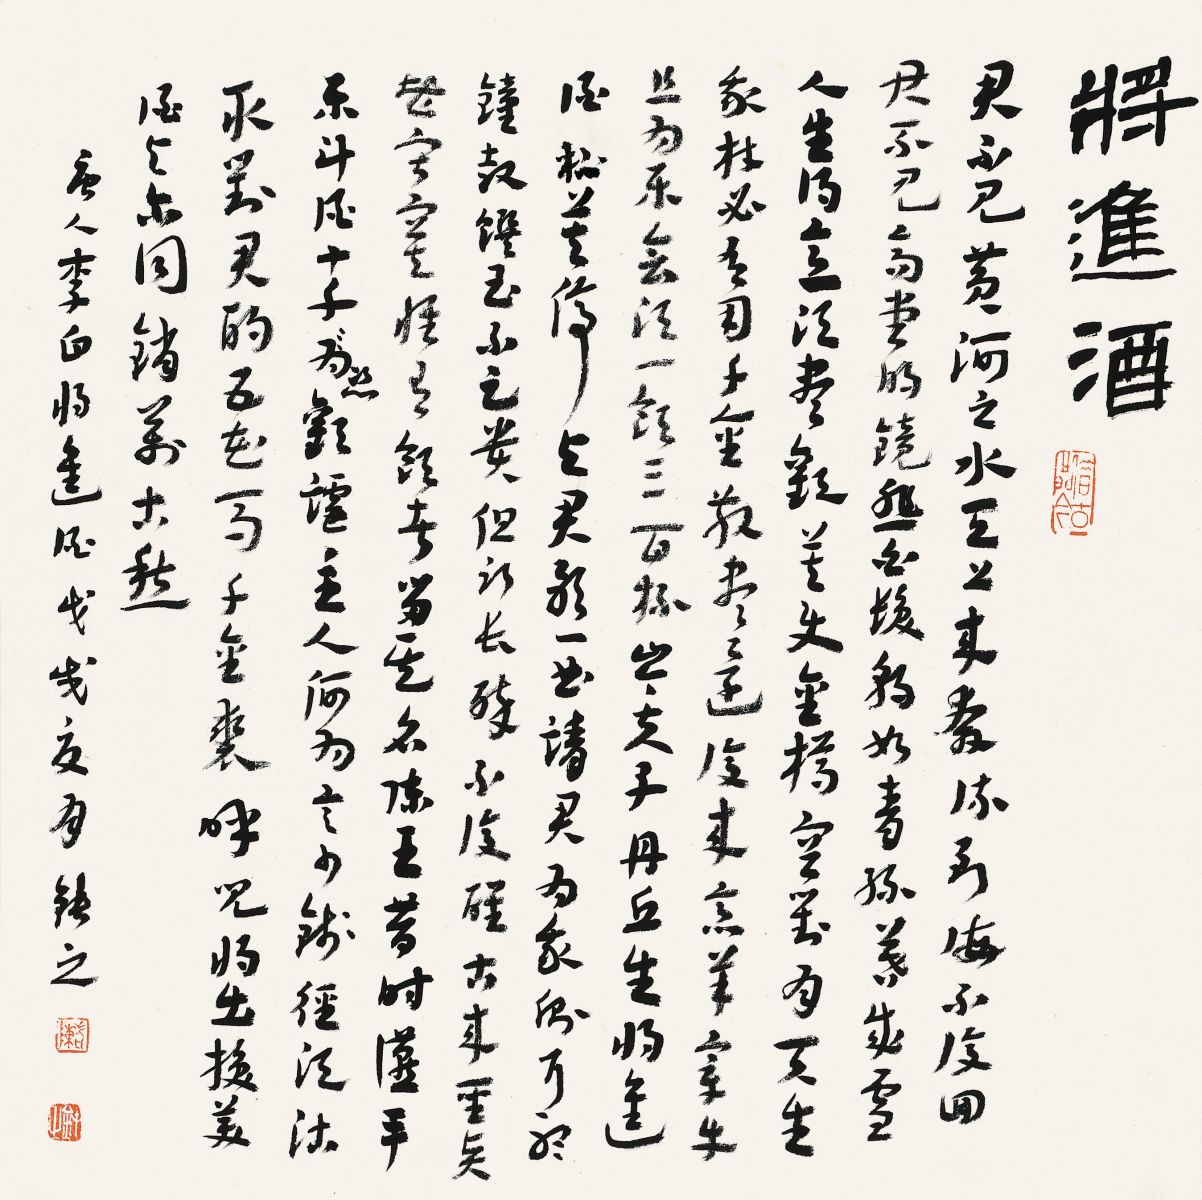 將進酒
君不見黃河之水天上來奔流到海不復回
君不見高堂明鏡悲白髮朝如青絲暮成雪
人生得意須盡歡莫使金樽空對月天生
我材必有用千金散盡還復來烹羊宰牛
且為樂會須一飲三百杯岑夫子丹丘生將進
酒杯莫停與君歌一曲請君為我側耳聽
鐘鼓饌玉不足貴但願長醉不復醒古來聖賢
皆寂寞惟有飲者留其名陳王昔時讌平
樂斗酒十千為恣歡謔主人何為言少錢徑須沽
取對君酌五花馬千金裘呼兒將出換美
酒與爾同銷萬古愁
唐人李白將進酒戊戌夏月之